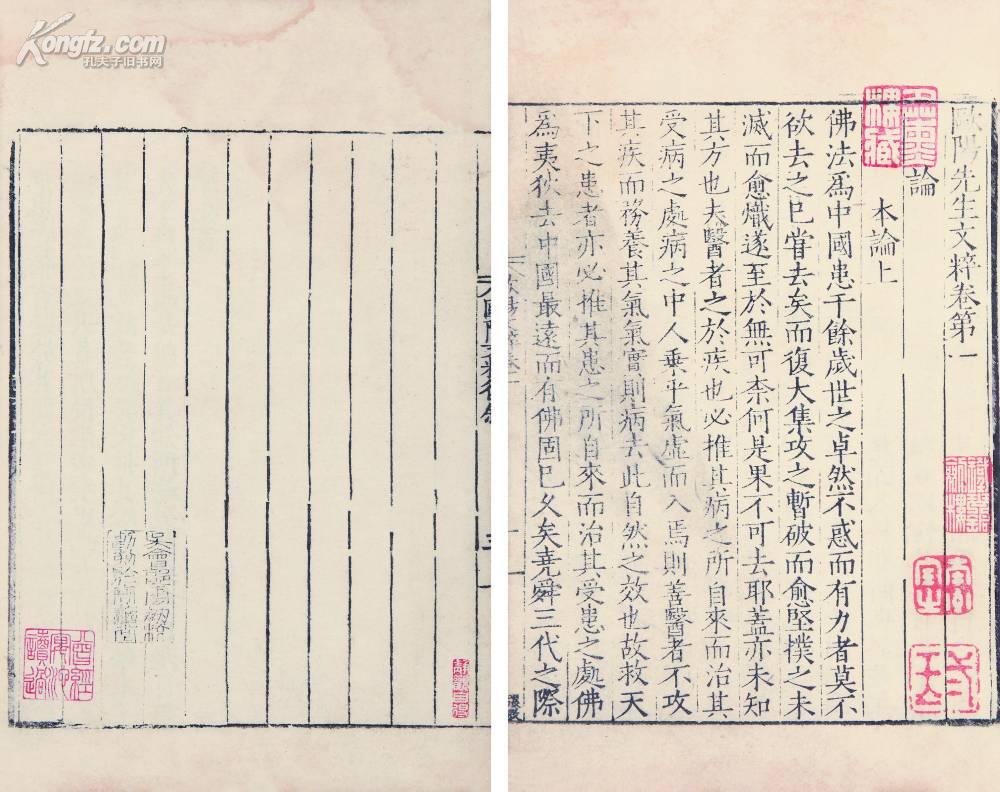 歐陽先生文粹卷第一
論
本論上
佛法爲中國患千餘歲世之卓然不惑而有力者莫不
欲去之已嘗去矣而復大集攻之暫破而愈堅撲之未
滅而愈熾遂至於無可柰何是果不可去耶蓋亦未知
其方也夫醫者之於疾也必推其病之所自來而治其
受病之處病之中人乗乎氣虛而入焉則善醫者不攻
其疾而務養其氣氣實則病去此自然之效也故救天
下之患者亦必推其患之所自來而治其受患之處佛
爲夷狄去中國最遠而有佛固已乆矣堯舜三代之際
Kongfz.com
孔夫子旧书网